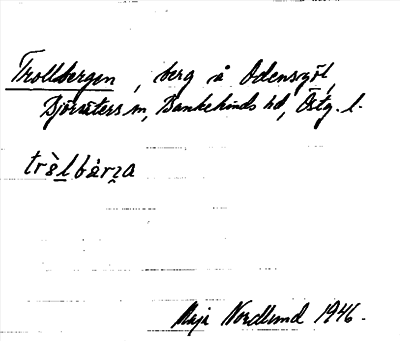 Trollbergen, berg å Odensgöl,
Björsäters sn, Bankekinds hd, Östg. l.
trɵ̀lbǽrɪa
Maja Nordlund 1946.